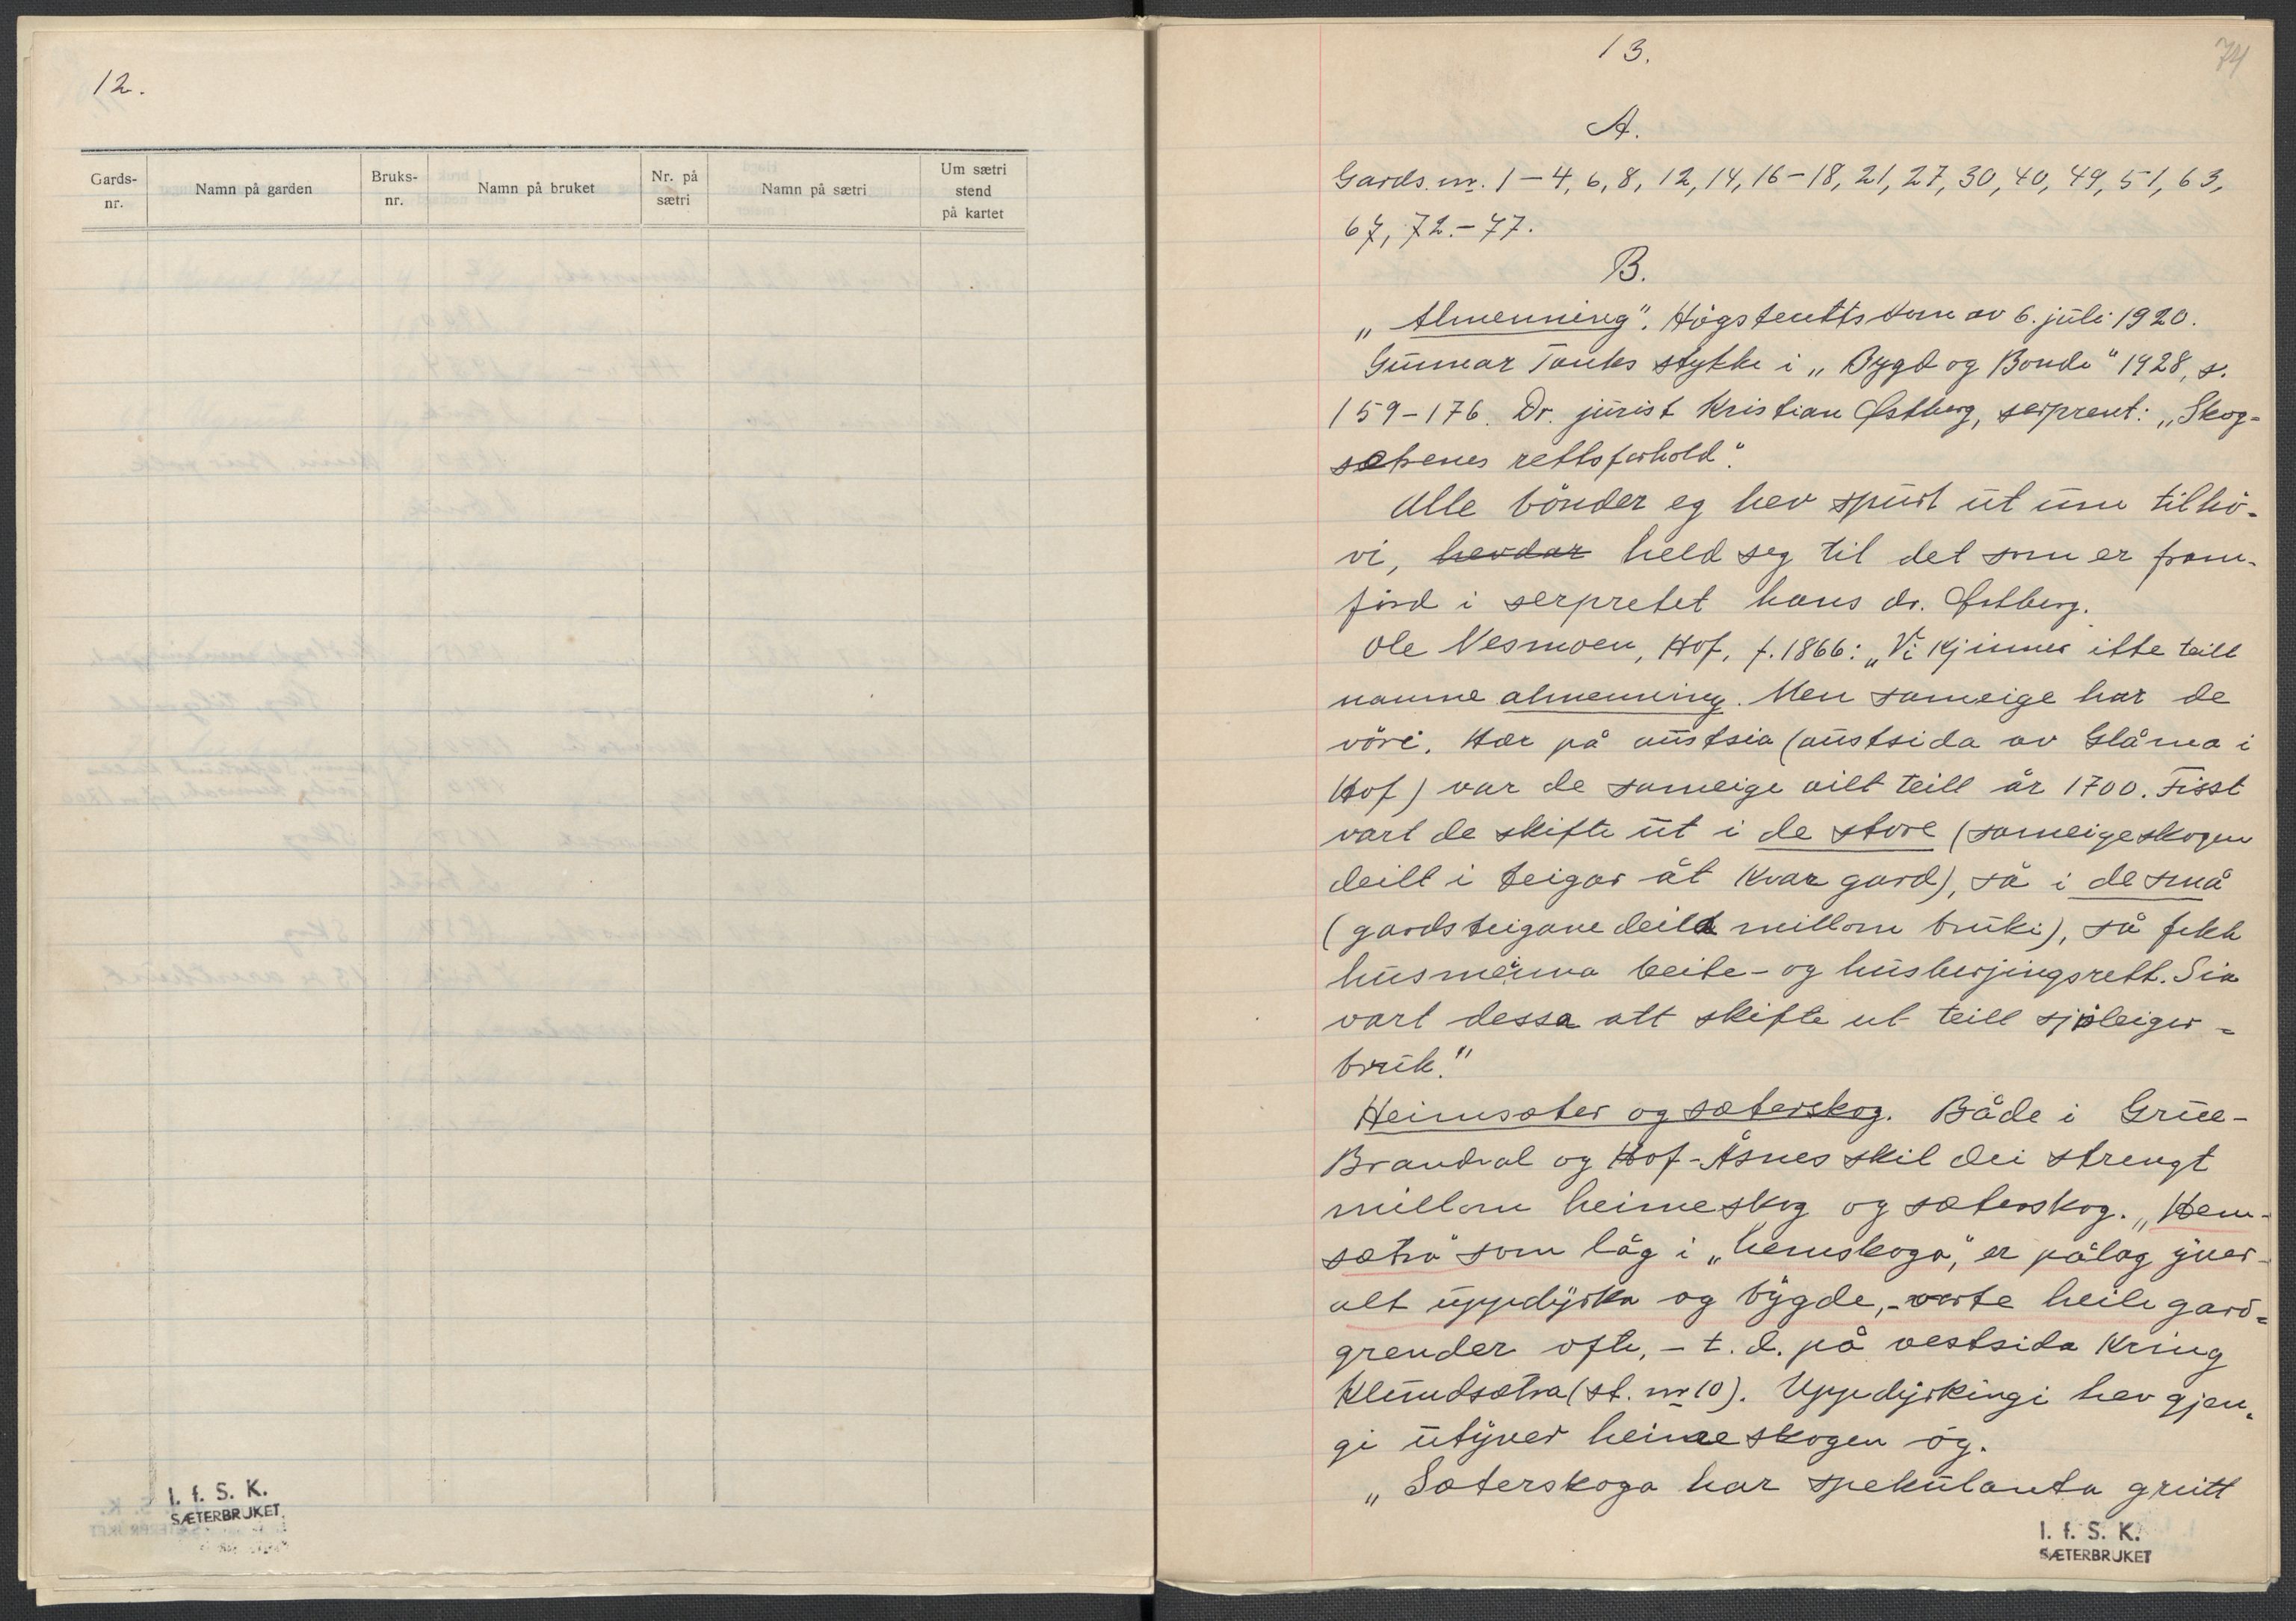 12.
Gards-
nr.
Namn på garden
Bruks-
nr.
Namn på bruket
Nr. på
sætri
Namn på sætri
Um sætri
stend
på kartet
I. f. S. K.
SÆTERBRUKET
13.
74
A.
Gards. nr. 1-4, 6, 8, 12, 14, 16-18, 21, 27, 30, 40, 49, 51, 63,
67, 72.-77.
B.
„Almenning". Högsterettsdom av 6. juli 1920.
Gunnar Tanks stykke i „Bygd og Bonde" 1928, s.
159-176. Dr. jurist Kristian Østberg, serprent: „Skog-
sakenes rettsforhold".
Alle bönder eg hev spurt ut um tilhö-
vi, hevdar held seg til det som er fram-
förd i serpretet hans dr. Østberg.
Ole Nesmoen, Hof, f. 1866: „Vi kjinner itte teill
namne almenning. Men sameige har de
vöri. Her på austsia (austsida av Glåma i
Hof) var de sameige ailt teill år 1700. Fisst
vart de skifte ut i de store (sameigeskogen
deilt i teigar åt kvar gard), så i de små
(gardsteigane deild millom bruki), så fekk
husmenna beite- og husberjingsrett. Sia
vart dessa att skifte ut teill sjöleiger-
bruk."
Heimsæter og sæterskog. Både i Grue-
Brandval og Hof-Åsnes skil dei strengt
millom heimeskog og sæterskog. „Hem-
sætra" som låg i „hemskoga", er pålag yver-
alt uppdyrka og bygde, - vorte heile gard-
grender ofte, - t. d. på vestsida kring
Klundsætra (st. nr 10). Uppdyrkingi hev gjen-
gi utyver heimeskogen óg.
„Sæterskoga har spekulanta gruitt
I. f. S. K.
SÆTERBRUKET